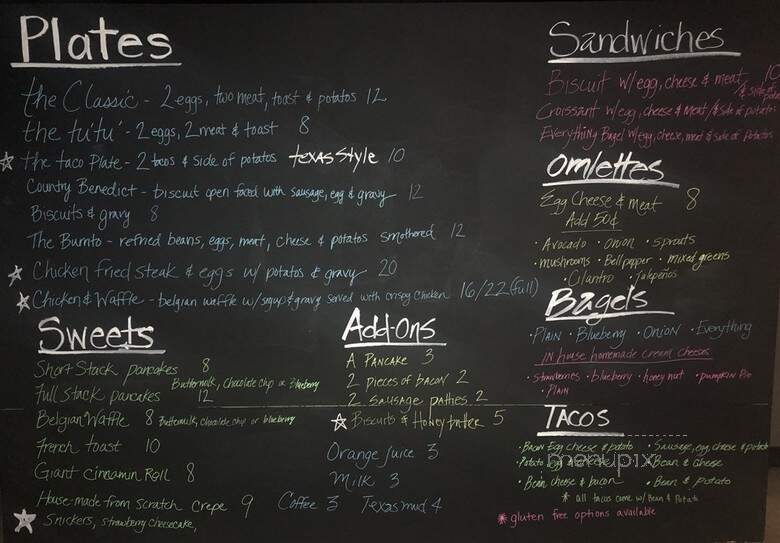 Plates
the Classic - 2 eggs, two meat, toast & potatos 12
the tutu' - 2 eggs, 2 meat & toast 8
the taco Plate - 2 tacos & side of potatos texas style 10
Country Benedict - biscuit open faced with sausage, egg & gravy 12
Biscuits & gravy 8
The Burrito - refried beans, eggs, meat, cheese & potatos smothered 12
Chicken fried steak & eggs w/ potatos & gravy 20
Chicken & Waffle - belgian waffle w/ syrup & gravy served with crispy chicken 16/22 (full)
Sweets
Short Stack pancakes 8
Buttermilk, Chocolate chip or Blueberry
Full stack pancakes 12
Belgian Waffle 8 Buttermilk, chocolate chip or blueberry
French toast 10
Giant Cinnamin Roll 8
House-made from Scratch crepe 9
Snickers, strawberry cheesecake,
Add-Ons
A Pancake 3
2 pieces of bacon 2
2 Sausage patties 2
Biscuits & Honey butter 5
Orange juice 3
Milk 3
Coffee 3 Texas mud 4
Sandwiches
Biscuit w/ egg, cheese & meat 10
& side of
Croissant w/ egg, cheese & Meat / & side of potato
Everything Bagel w/ egg, cheese, meat & side of Potatos
Omlettes
Egg Cheese & meat 8
Add 50¢
• Avocado • onion • sprouts
• mushrooms • Bell pepper • mixed greens
• Cilantro • jalapeños
Bagels
• Plain • Blueberry • Onion • Everything
In house homemade cream cheese
• Strawberries • blueberry • honey nut • pumpkin Pie
• Plain
Tacos
• Bacon Egg cheese & potato • Sausage, egg, cheese & potato
• Potato Egg • Bean & Cheese
• Bean cheese & bacon • Bean & potato
* all tacos come w/ Bean & Potato
* gluten free options available
menupix